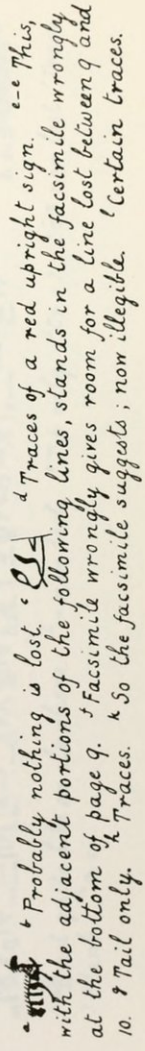 a b Probably nothing is lost. c d Traces of a red upright sign. e-e This,
with the adjacent portions of the following lines, stands in the facsimile wrongly
at the bottom of page 9. f Facsimile wrongly gives room for a line lost between 9 and
10. g Tail only. h Traces. k So the facsimile suggests; now illegible. l Certain traces.